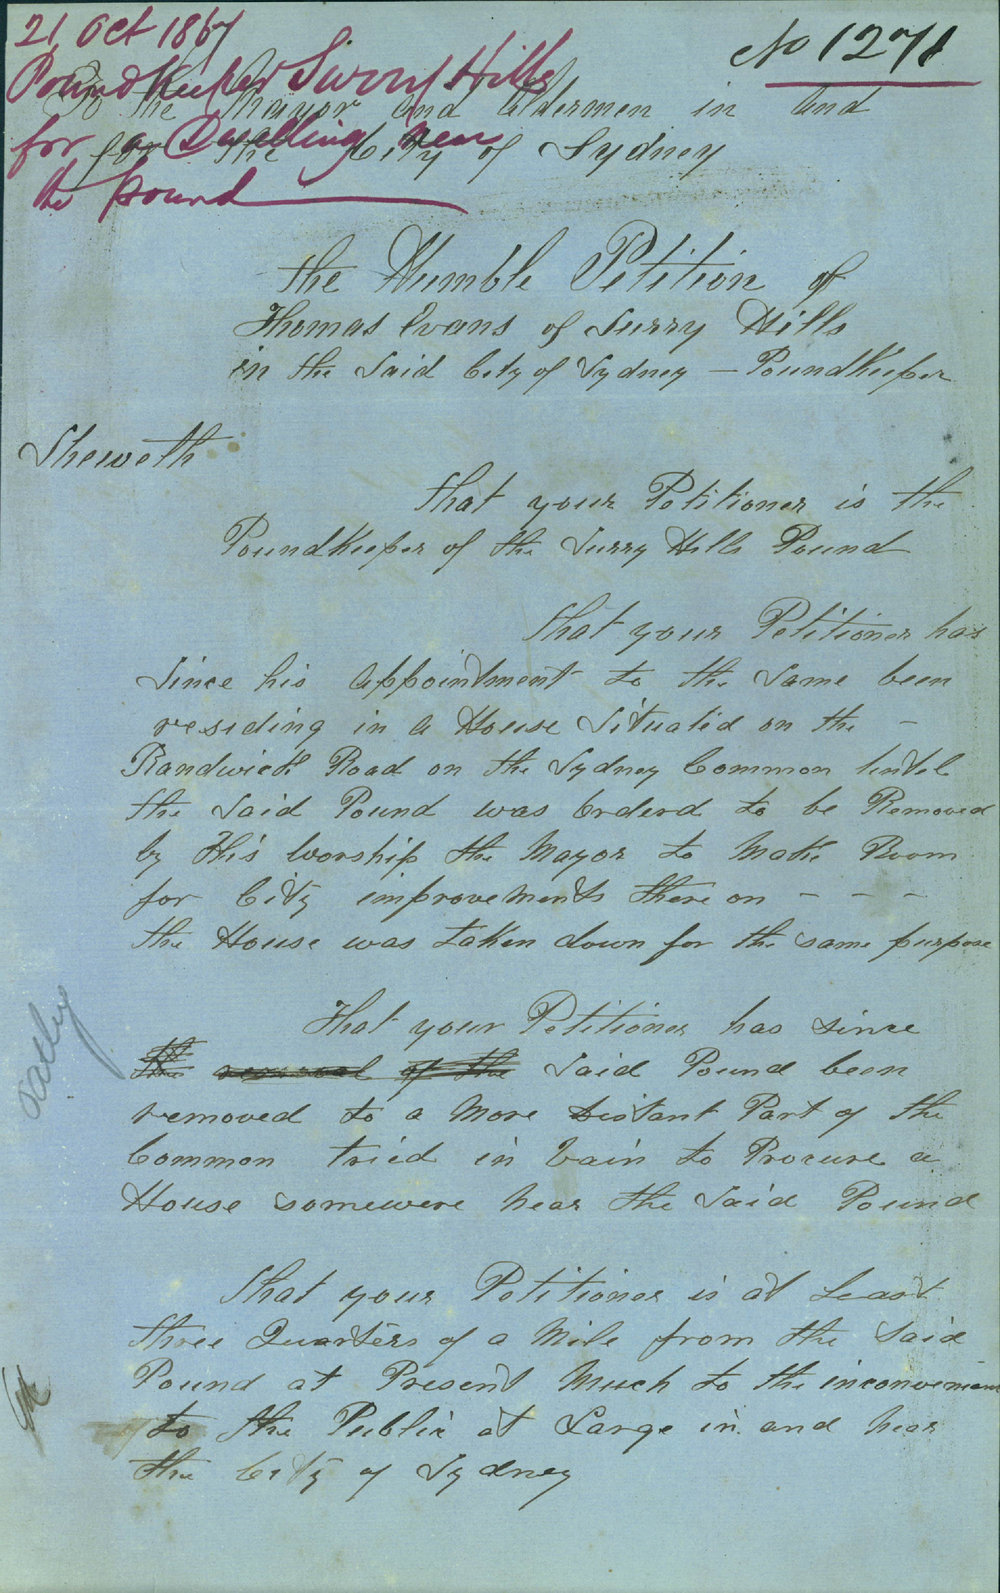 21 Oct 1867
No 1271
Poundkeeper Surry Hills
for a Dwelling near
the pound
To the Mayor and Aldermen in and
for the City of Sydney
The Humble Petition of
Thomas Evans of Surry Hills
in the Said City of Sydney — PoundKeeper
Sheweth
That your Petitioner is the
PoundKeeper of the Surry Hills Pound
That your Petitioner has
Since his Appointment to the Same been
residing in a House Situated on the –
Randwick Road on the Sydney Common until
the Said Pound was Orderd to be Removed
by His Worship the Mayor to Make Room
for City improvements there on - - -
the House was taken down for the same purpose
That your Petitioner has since
the removal of the Said Pound been
removed to a More Distant Part of the
Common tried in Vain to Procure a
House somewere near the Said Pound
That your Petitioner is at Least
three Quarters of a Mile from the Said
Pound at Present Much to the inconvenience
to the Public at Large in and near
the City of Sydney